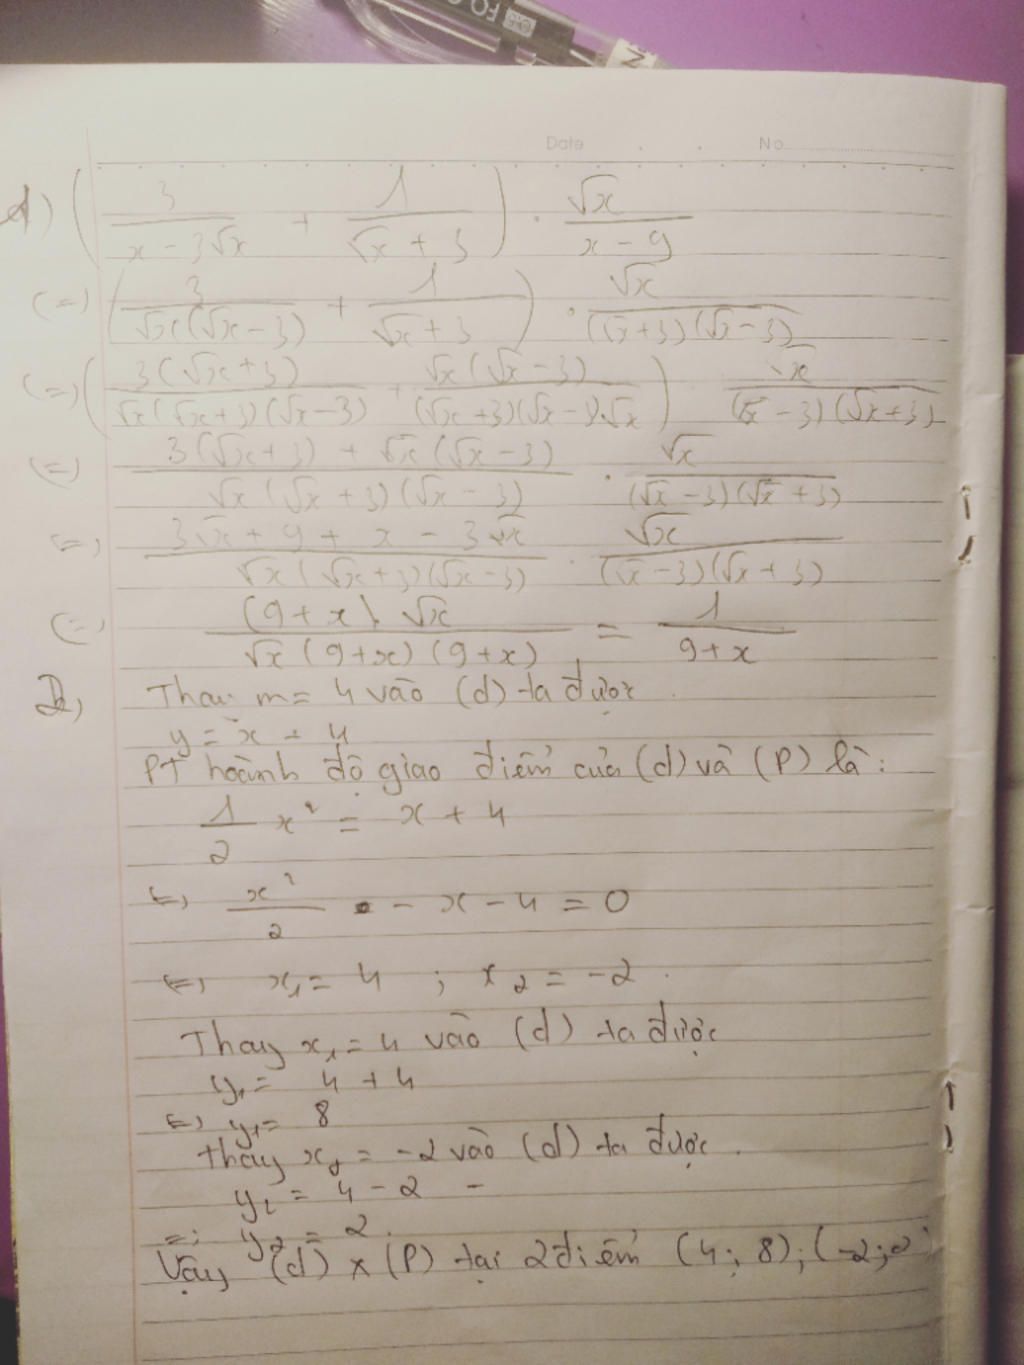 FO
Date No
1) ( 3 / (x - 3√x) + 1 / (√x + 3) ) . √x / (x - 9)
(=) ( 3 / (√x(√x - 3)) + 1 / (√x + 3) ) . √x / ((√x + 3)(√x - 3))
(=) ( 3(√x + 3) / (√x(√x + 3)(√x - 3)) + √x(√x - 3) / ((√x + 3)(√x - 3).√x) ) . √x / ((√x - 3)(√x + 3))
(=) (3(√x + 3) + √x(√x - 3)) / (√x(√x + 3)(√x - 3)) . √x / ((√x - 3)(√x + 3))
(=) (3√x + 9 + x - 3√x) / (√x(√x + 3)(√x - 3)) . √x / ((√x - 3)(√x + 3))
(=) (9 + x).√x / (√x(9 + x)(9 + x)) = 1 / (9 + x)
2, Thay m = 4 vào (d) ta được
y = x + 4
PT hoành độ giao điểm của (d) và (P) là:
1/2 x² = x + 4
(=) x²/2 - x - 4 = 0
(=) x₁ = 4 ; x₂ = -2
Thay x₁ = 4 vào (d) ta được
y₁ = 4 + 4
(=) y₁ = 8
thay x₂ = -2 vào (d) ta được
y₂ = 4 - 2
=) y₂ = 2
Vậy (d) x (P) tại 2 điểm (4; 8); (-2; 2)